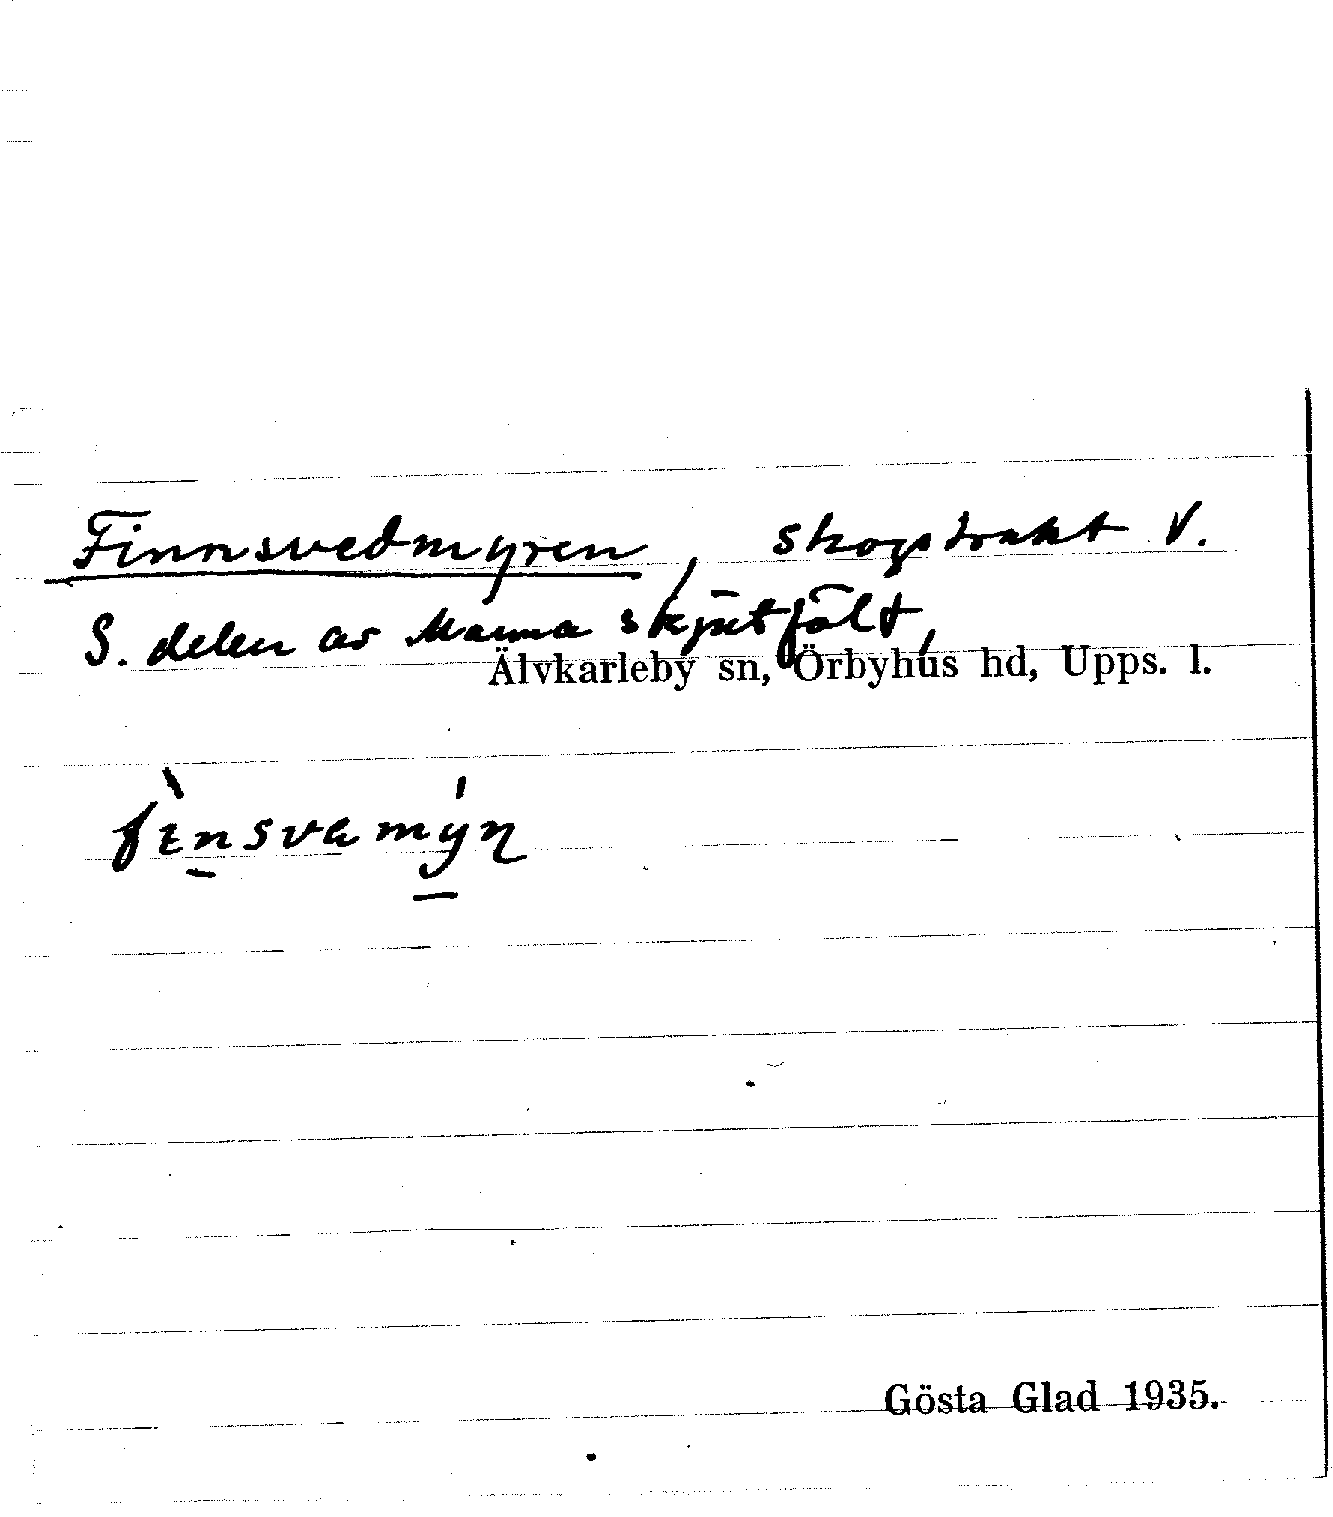 Finnsvedmyren, skogstrakt V.
S. delen av Marma skjutfält,
Älvkarleby sn, Örbyhus hd, Upps. l.
Gösta Glad 1935.